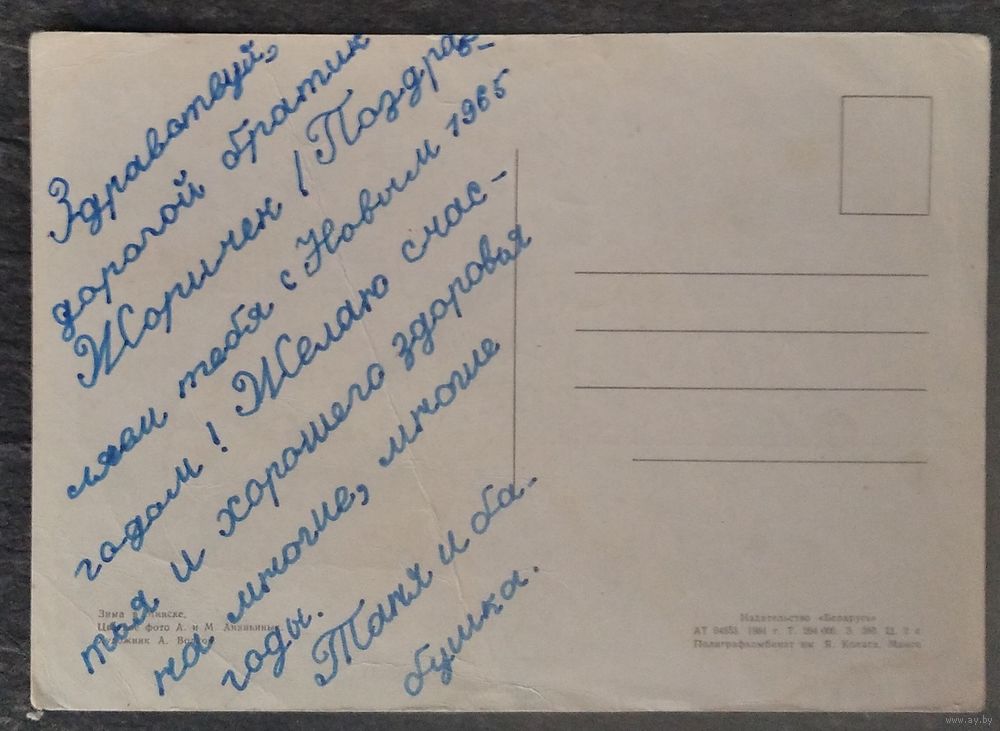 Здравствуй,
дорогой братик
Жоричек! Поздрав-
ляем тебя с Новым 1965
годом! Желаю счас-
тья и хорошего здоровья
на многие, многие
годы.
Таня и ба-
бушка.
Зима в Минске.
фото А. и М. Ананьиных
Художник А.
Издательство «Беларусь»
АТ 1964 г. Т. З. Ц. 2 к.
Полиграфкомбинат им. Я. Коласа, Минск
www.ay.by